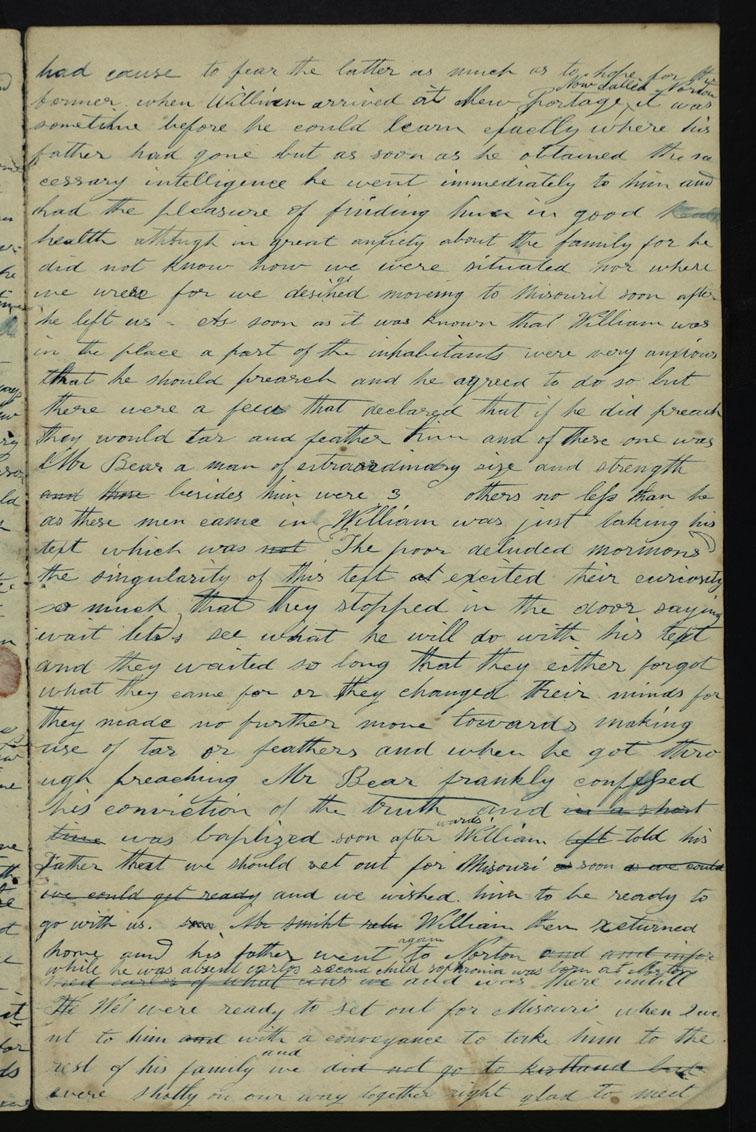 had cause to fear the latter as much as to hope for the
Now called Norton
former when William arrived at New Portage it was
sometime before he could learn exactly where his
father had gone but as soon as he obtained the ne
cessary intelligence he went immediately to him and
had the pleasure of finding him in good
health although in great anxiety about the family for he
did not know how we were situated nor where
we were for we desired moveing to Misouri soon after
he left us - As soon as it was known that William was
in the place a part of the inhabitants were very anxious
that he should preach and he agreed to do so but
there were a few that declared that if he did preach
they would tar and feather him and of these one was
Mr Bear a man of extraordinary size and strength
and these besides him were 3 others no less than he
as these men came in William was just taking his
text which was not The poor deluded mormons
the singularity of this text excited their curiosity
so much that they stopped in the door saying
wait lets see what he will do with his text
and they waited so long that they either forgot
what they came for or they changed their minds for
they made no further move towards making
use of tar or feathers and when he got thro
ugh preaching Mr Bear frankly confessed
his conviction of the truth and in a short
time was baptized soon after
wards
William left told his
father that we should set out for Misouri soon as we could
we could get ready and we wished him to be ready to
go with us. Mr smiht retu William then returned
again
home and his father went to Norton and and infor
while he was absent carlos second child sophronia was born at Norton
med carlos of what was we and was there untill
We were ready to set out for Misouri when we
nt to him and with a conveyance to take him to the
and
rest of his family we did not go to kirtland but
were shotly on our way together right glad to meet